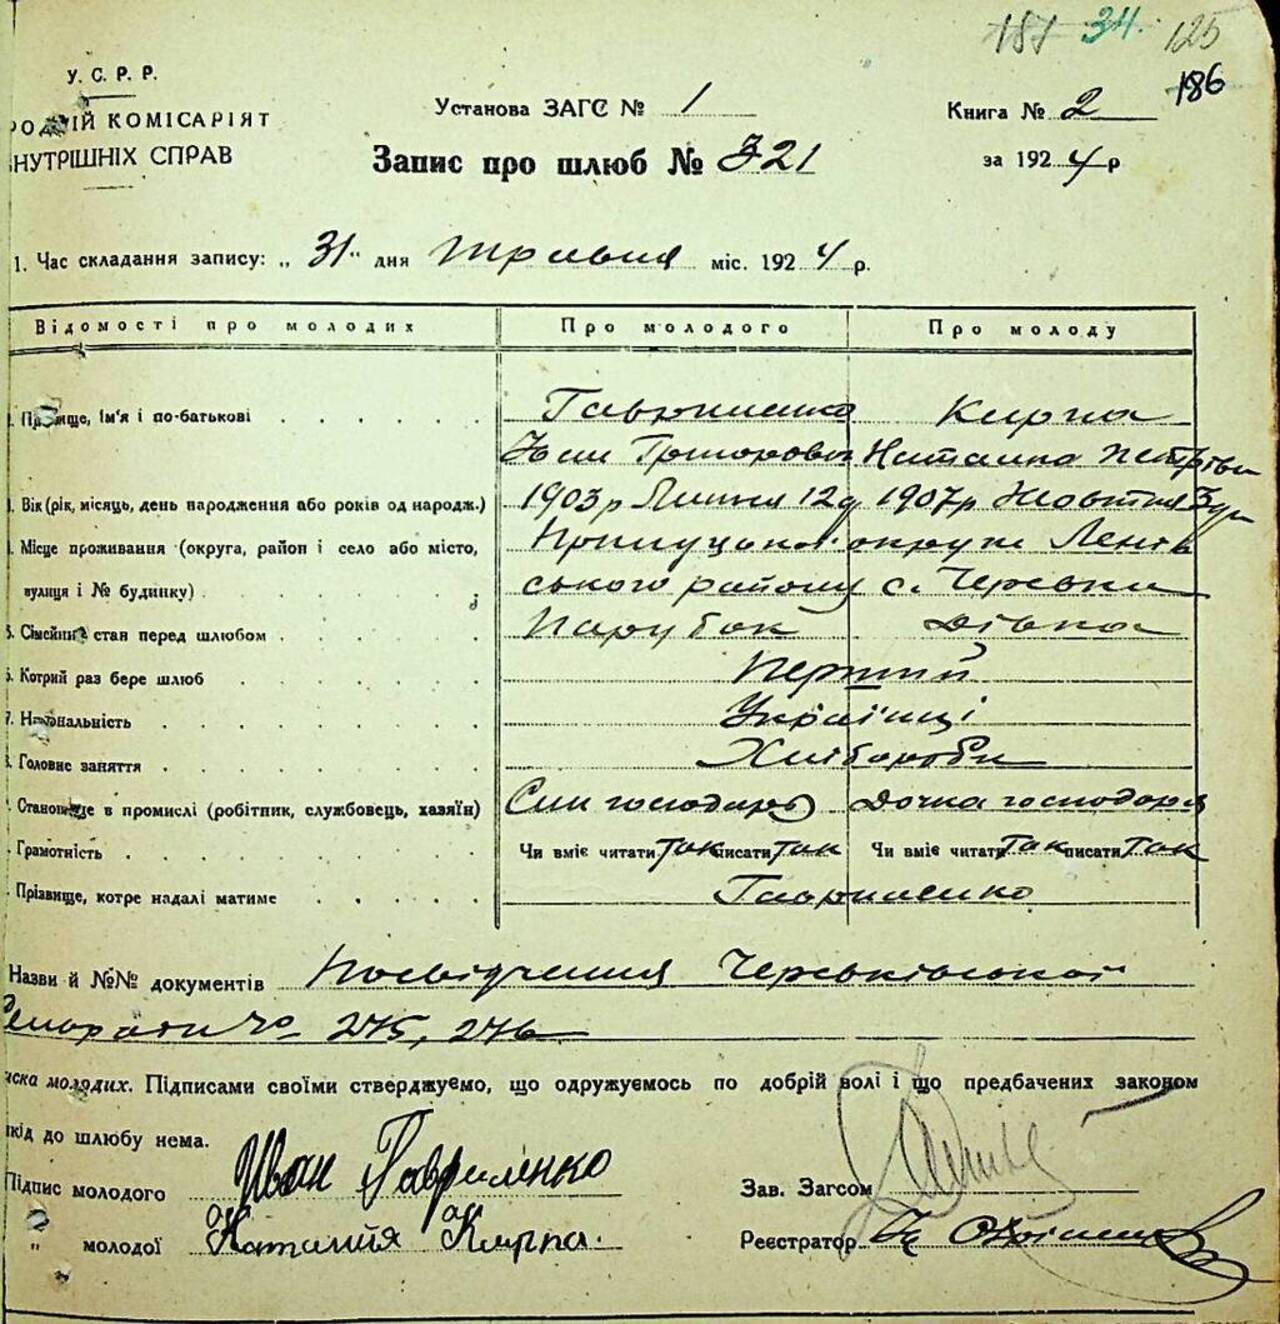 181 34. 125
186
У. С. Р. Р.
РОДНІЙ КОМІСАРІЯТ
НУТРІШНІХ СПРАВ
Установа ЗАГС № 1
Книга № 2
Запис про шлюб № 321
за 1924 р
1. Час складання запису: „31“ дня травня міс. 1924 р.
Відомості про молодих Про молодого Про молоду
Прізвище, ім'я і по-батькові Гавриленко Кирпа
Іван Григорович Наталка Петрівн
Вік (рік, місяць, день народження або років од народж.) 1903 р Липня 12 д 1907 р Жовтня 3 дн
Місце проживання (округа, район і село або місто, Прилуцької округи Ленів
вулиця і № будинку) ського району с. Черевки
5. Сімейний стан перед шлюбом Парубок Дівка
6. Котрий раз бере шлюб Перший
7. Національність Українці
8. Головне заняття Хлібороби
Становище в промислі (робітник, службовець, хазяїн) Син господаря Дочка господаря
Грамотність Чи вміє читати так писати так Чи вміє читати так писати так
Прізвище, котре надалі матиме Гавриленко
Назви й №№ документів Посвідчення Черевківської
сільради № 275, 276
иска молодих. Підписами своїми стверджуємо, що одружуємось по добрій волі і що предбачених законом
кід до шлюбу нема.
Підпис молодого Иван Гавриленко Зав. Загсом
„ молодої Наталия Кирпа. Реєстратор